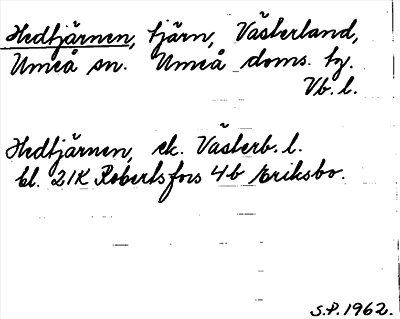 Hedtjärnen, tjärn, Västerland,
Umeå sn. Umeå doms. hg.
Vb. l.
Hedtjärnen, ek. Västerb. l.
bl. 21K Robertsfors 4b Eriksbo.
S.P. 1962.